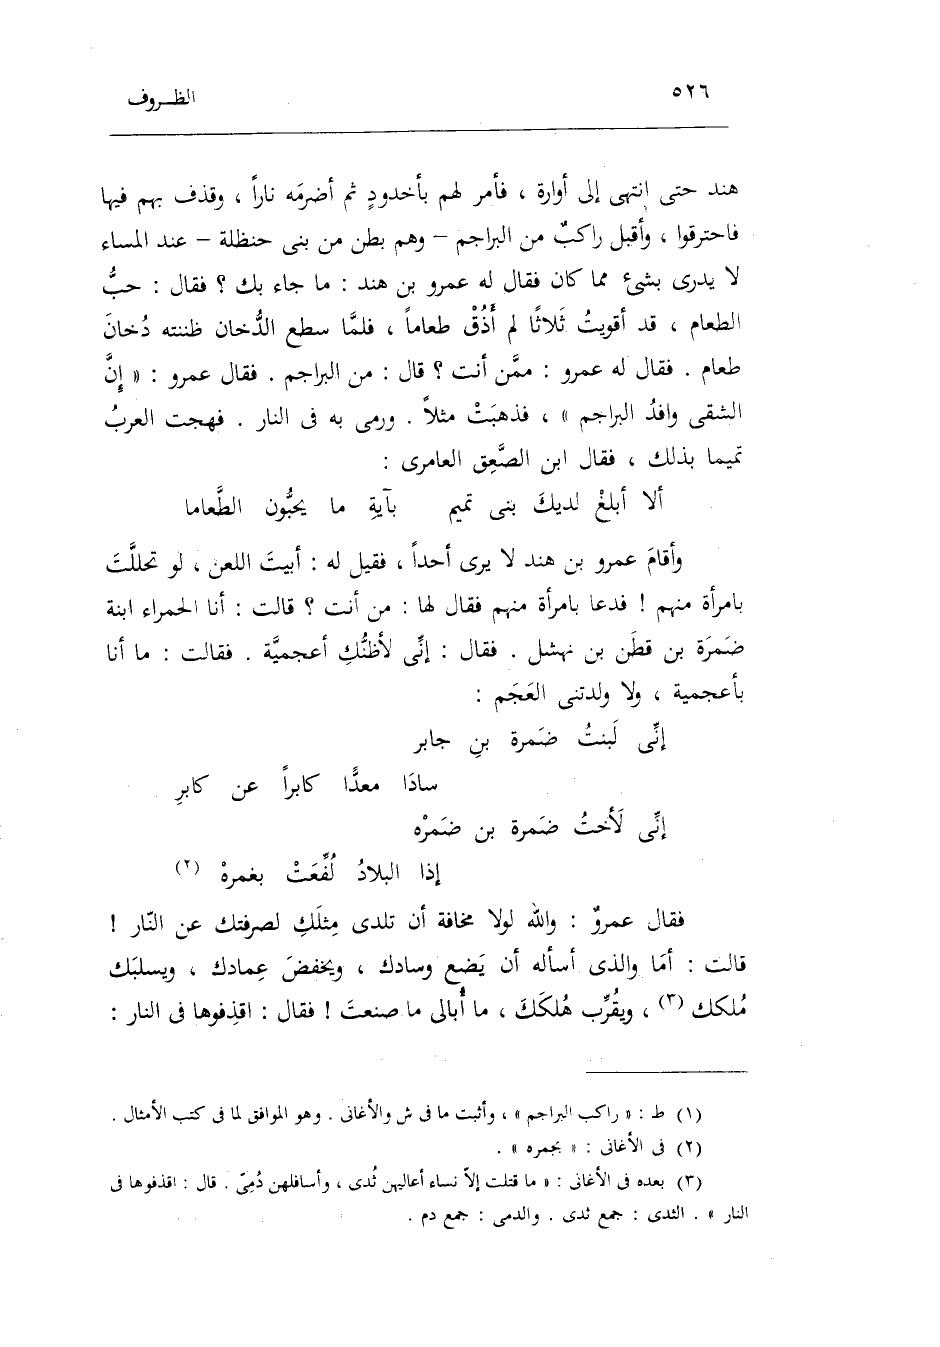 ٥٢٦
الظـروف
هند حتى إنتهى إلى أوارة ، فأمر لهم بأخدودٍ ثم أضرمَه ناراً ، وقذف بهم فيها
فاحترقوا ، وأقبل راكبٌ من البراجم – وهم بطن من بنى حنظلة – عند المساء
لا يدرى بشئ مما كان فقال له عمرو بن هند : ما جاء بك ؟ فقال : حبُّ
الطعام ، قد أقويتُ ثَلاثًا لم أَذُقْ طعاماً ، فلمَّا سطع الدُّخان ظننته دُخانَ
طعام . فقال له عمرو : ممَّن أنت ؟ قال : من البراجم . فقال عمرو : « إنَّ
الشقى وافدُ البراجم » ، فذهبَتْ مثلاً . ورمى به فى النار . فهجت العربُ
تميما بذلك ، فقال ابن الصَّعِق العامرى :
ألا أبلغْ لديكَ بنى تميم بآيةِ ما يحبُّون الطَّعاما
وأقامَ عمرو بن هند لا يرى أحداً ، فقيل له : أبيتَ اللعن ، لو تحللَّتَ
بامرأة منهم ! فدعا بامرأة منهم فقال لها : من أنت ؟ قالت : أنا الحمراء ابنة
ضَمَرَة بن قطَن بن نهشل . فقال : إنِّى لأظنُّكِ أعجميَّة . فقالت : ما أنا
بأعجمية ، ولا ولدتنى العَجَم :
إنِّى لَبنتُ ضَمرة بنِ جابر
سادَا معدًّا كابراً عن كابرِ
إنِّى لَأختُ ضَمرة بن ضَمرْه
إذا البلادُ لُفِّعَتْ بغمرهْ (٢)
فقال عمروٌ : والله لولا مخافة أن تلدى مِثلَكِ لصرفتك عن النّار !
قالت : أمَا والذى أسأله أن يَضَع وسادك ، ويخفضَ عِمادك ، ويسلبَك
مُلكك (٣) ، ويقُرِّب هُلكَكَ ، ما أُبالى ما صنعتَ ! فقال : اقذِفوها فى النار :
(١) ط : « راكب البراجم » ، وأثبت ما فى ش والأغانى . وهو الموافق لما فى كتب الأمثال .
(٢) فى الأغانى : « بجمره » .
(٣) بعده فى الأغانى : « ما قتلت إلاّ نساء أعاليهن ثُدى ، وأسافلهن دُمِىّ . قال : اقذفوها فى
النار » . الثدى : جمع ثدى . والدمى : جمع دم .